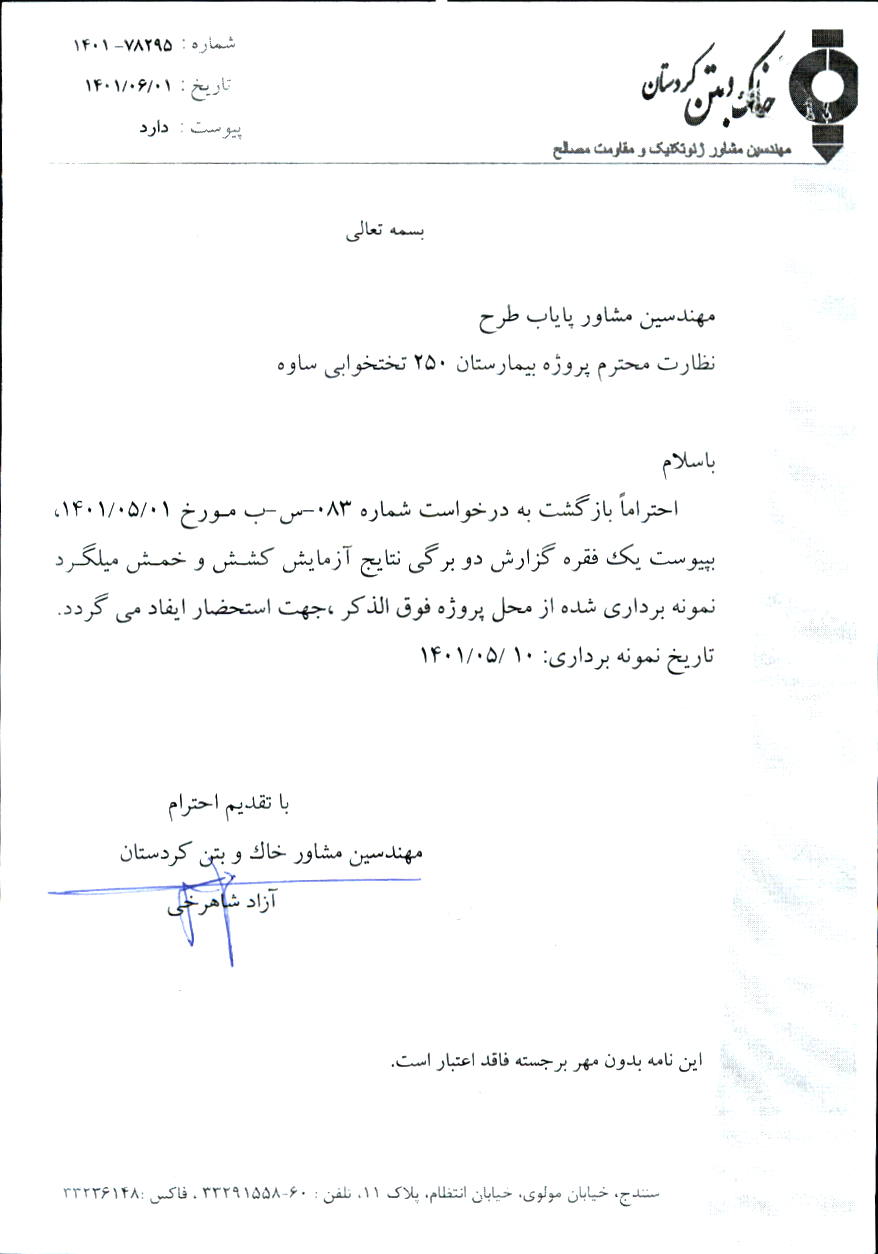 شماره : ۷۸۲۹۵- ۱۴۰۱
تاریخ : ۱۴۰۱/۰۶/۰۱
پیوست : دارد
خاک و بتن کردستان
مهندسین مشاور ژئوتکنیک و مقاومت مصالح
بسمه تعالی
مهندسین مشاور پایاب طرح
نظارت محترم پروژه بیمارستان ۲۵۰ تختخوابی ساوه
باسلام
احتراماً بازگشت به درخواست شماره ۰۸۳-س-ب مورخ ۱۴۰۱/۰۵/۰۱،
بپیوست یک فقره گزارش دو برگی نتایج آزمایش کشش و خمش میلگرد
نمونه برداری شده از محل پروژه فوق الذکر ،جهت استحضار ایفاد می گردد.
تاریخ نمونه برداری: ۱۰ /۱۴۰۱/۰۵
با تقدیم احترام
مهندسین مشاور خاک و بتن کردستان
آزاد شاهرخی
این نامه بدون مهر برجسته فاقد اعتبار است.
سنندج، خیابان مولوی، خیابان انتظام، پلاک ۱۱، تلفن : ۶۰-۳۳۲۹۱۵۵۸ ، فاکس :۳۳۲۳۶۱۴۸